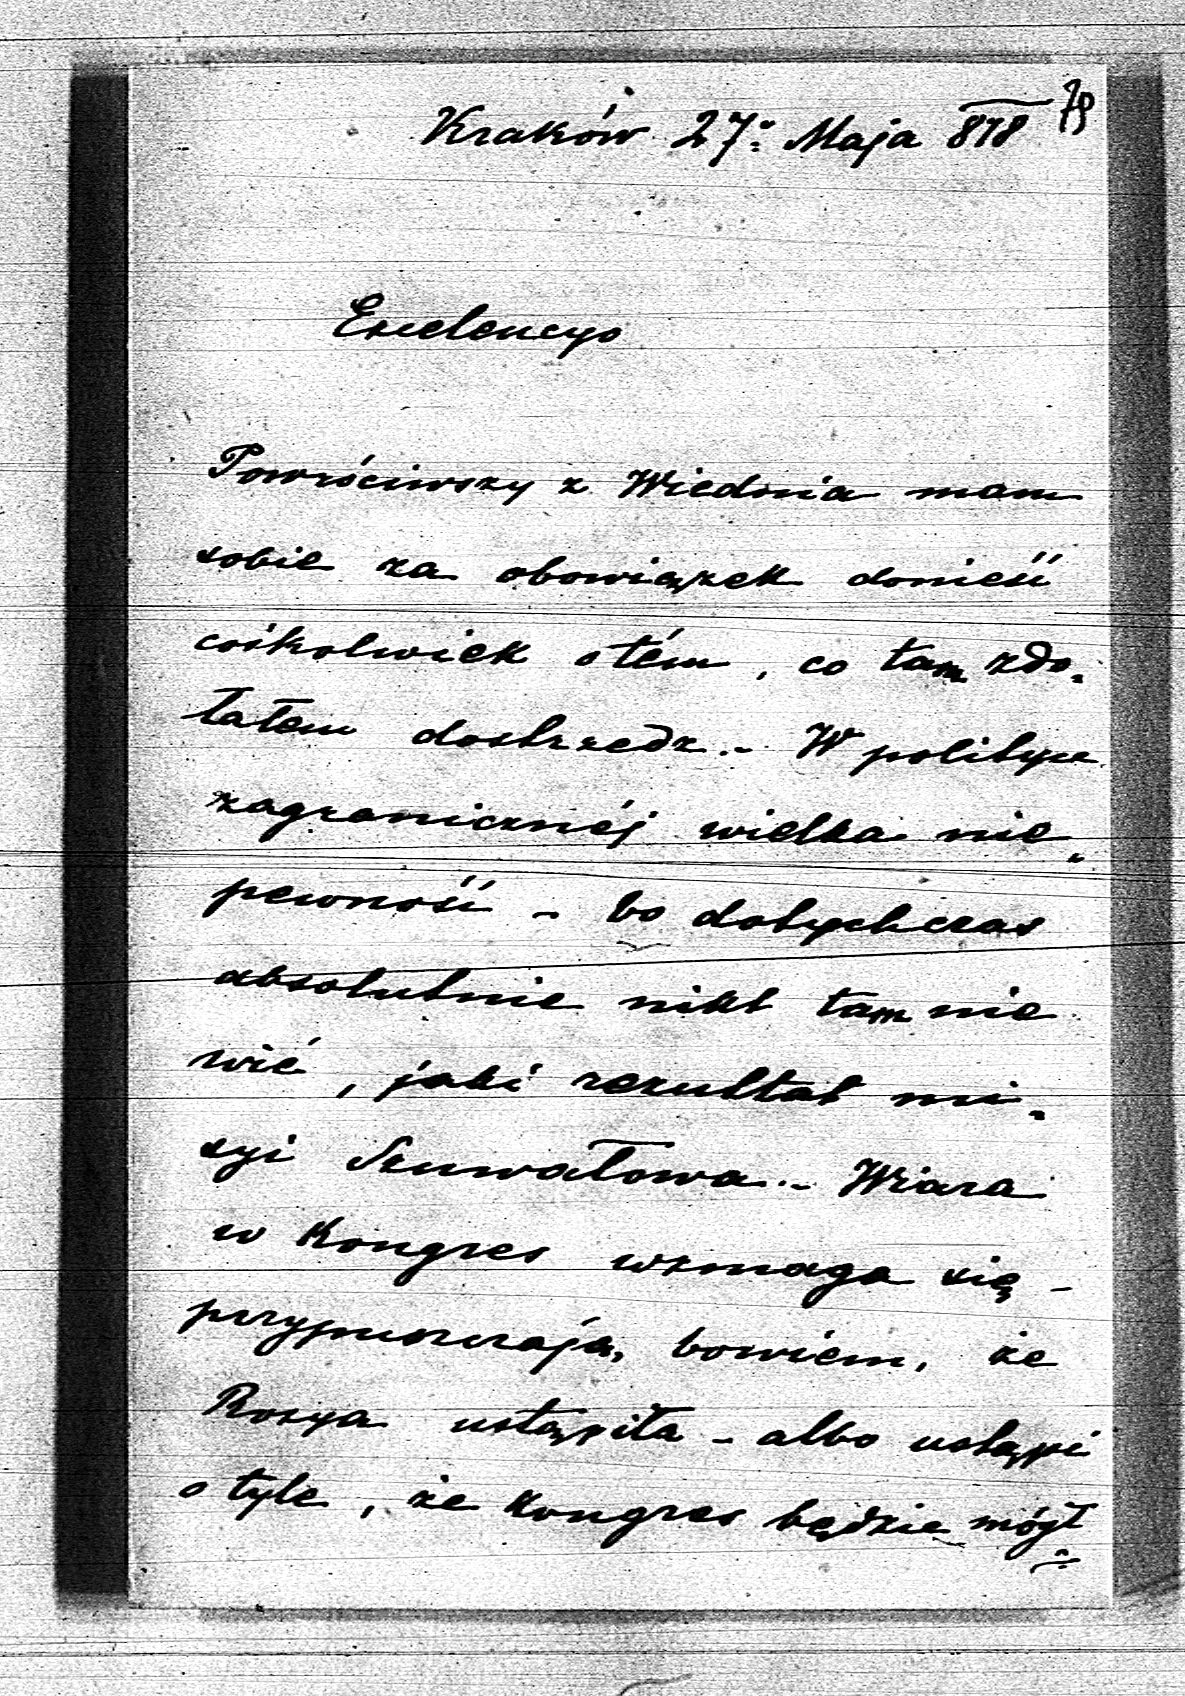 Kraków 27º Maja 878 79
Excelencyo
Powróciwszy z Wiednia mam
sobie za obowiązek donieść
cośkolwiek o tém, co tam zdo-
łałem dostrzedz.- W polityce
zagranicznéj wielka nie-
pewność - bo dotychczas
absolutnie nikt tam nie
wié, jaki rezultat mi-
syi Szuwałowa.- Wiara
w Kongres wzmaga się -
przypuszczają bowiem, że
Rosya ustąpiła - albo ustąpi
o tyle, że Kongres będzie mógł